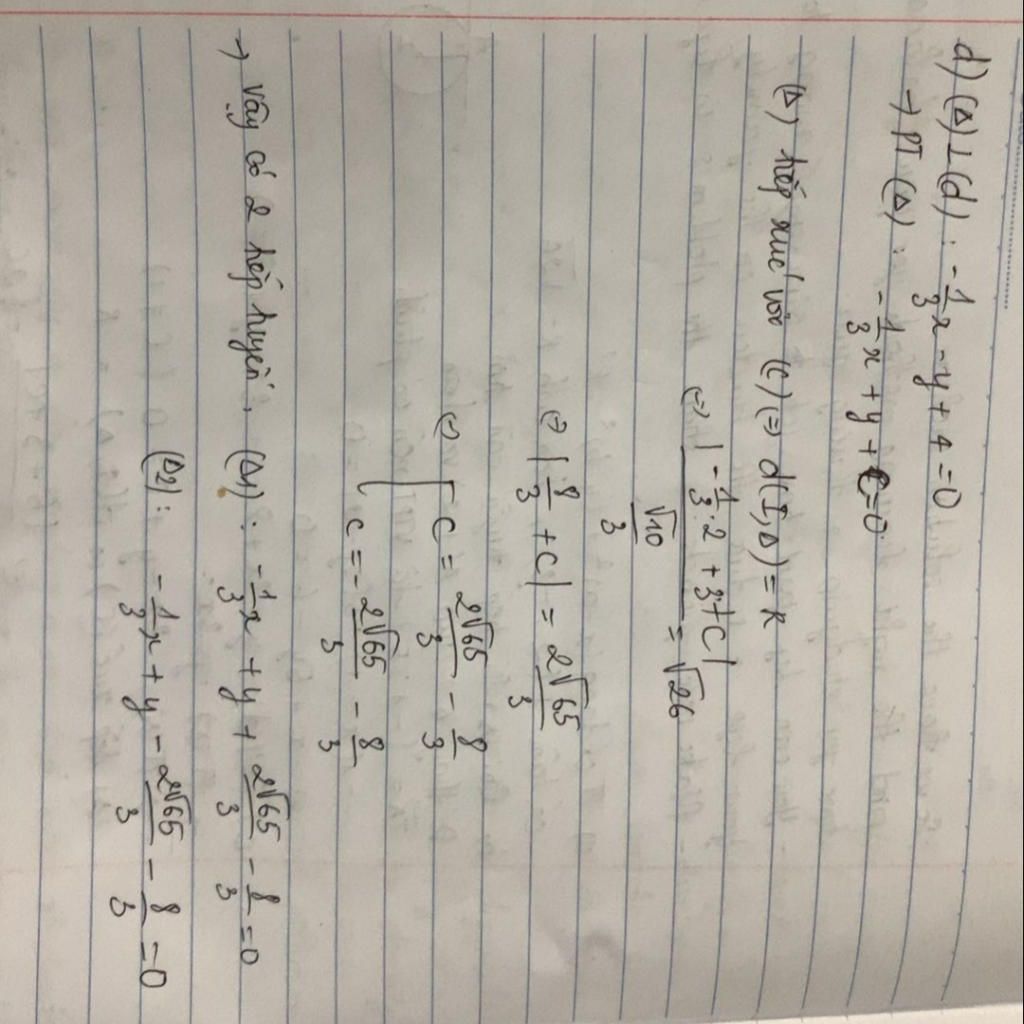 d) (Δ) ⊥ (d) : -1/3 x - y + 4 = 0
→ PT (Δ) : -1/3 x + y + C = 0
(Δ) tiếp xúc với (C) (=) d(I, Δ) = R
(=) |-1/3 . 2 + 3 + C| / (√10/3) = √26
(=) |8/3 + C| = 2√65/3
(=) [ C = 2√65/3 - 8/3
C = -2√65/3 - 8/3
→ Vậy có 2 tiếp tuyến, (Δ1) : -1/3 x + y + 2√65/3 - 8/3 = 0
(Δ2) : -1/3 x + y - 2√65/3 - 8/3 = 0